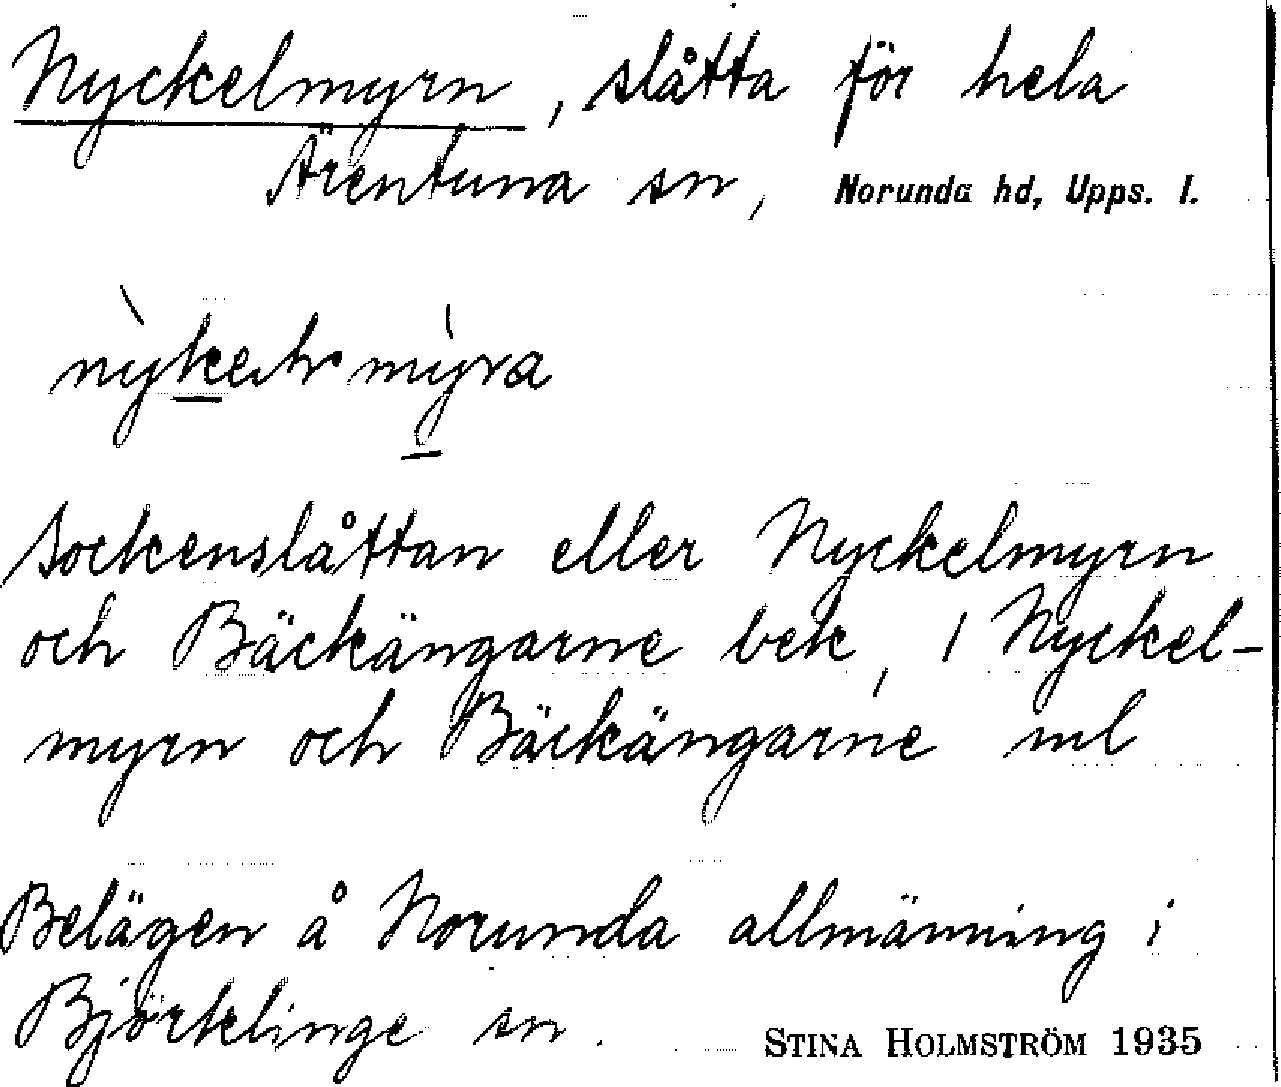 Nyckelmyrn, slåtta för hela
Ärentuna sn, Norunda hd, Upps. l.
myra
Sockenslåttan eller Nyckelmyrn
och Bäckängarne bek, i Nyckel-
myrn och Bäckängarne ml
Belägen å Norunda allmänning i
Björklinge sn.
STINA HOLMSTRÖM 1935